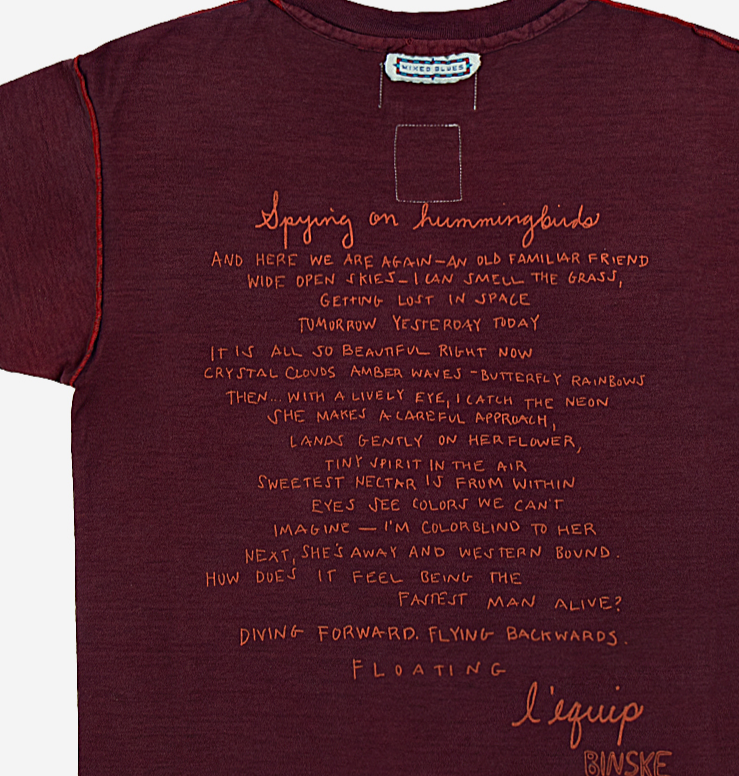 MIXED BLUES
Spying on hummingbirds
AND HERE WE ARE AGAIN—AN OLD FAMILIAR FRIEND
WIDE OPEN SKIES—I CAN SMELL THE GRASS,
GETTING LOST IN SPACE
TOMORROW YESTERDAY TODAY
IT IS ALL SO BEAUTIFUL RIGHT NOW
CRYSTAL CLOUDS AMBER WAVES -BUTTERFLY RAINBOWS
THEN... WITH A LIVELY EYE, I CATCH THE NEON
SHE MAKES A CAREFUL APPROACH,
LANDS GENTLY ON HER FLOWER,
TINY SPIRIT IN THE AIR
SWEETEST NECTAR IS FROM WITHIN
EYES SEE COLORS WE CAN'T
IMAGINE — I'M COLORBLIND TO HER
NEXT, SHE'S AWAY AND WESTERN BOUND.
HOW DOES IT FEEL BEING THE
FASTEST MAN ALIVE?
DIVING FORWARD. FLYING BACKWARDS.
FLOATING
l'équip
BINSKE